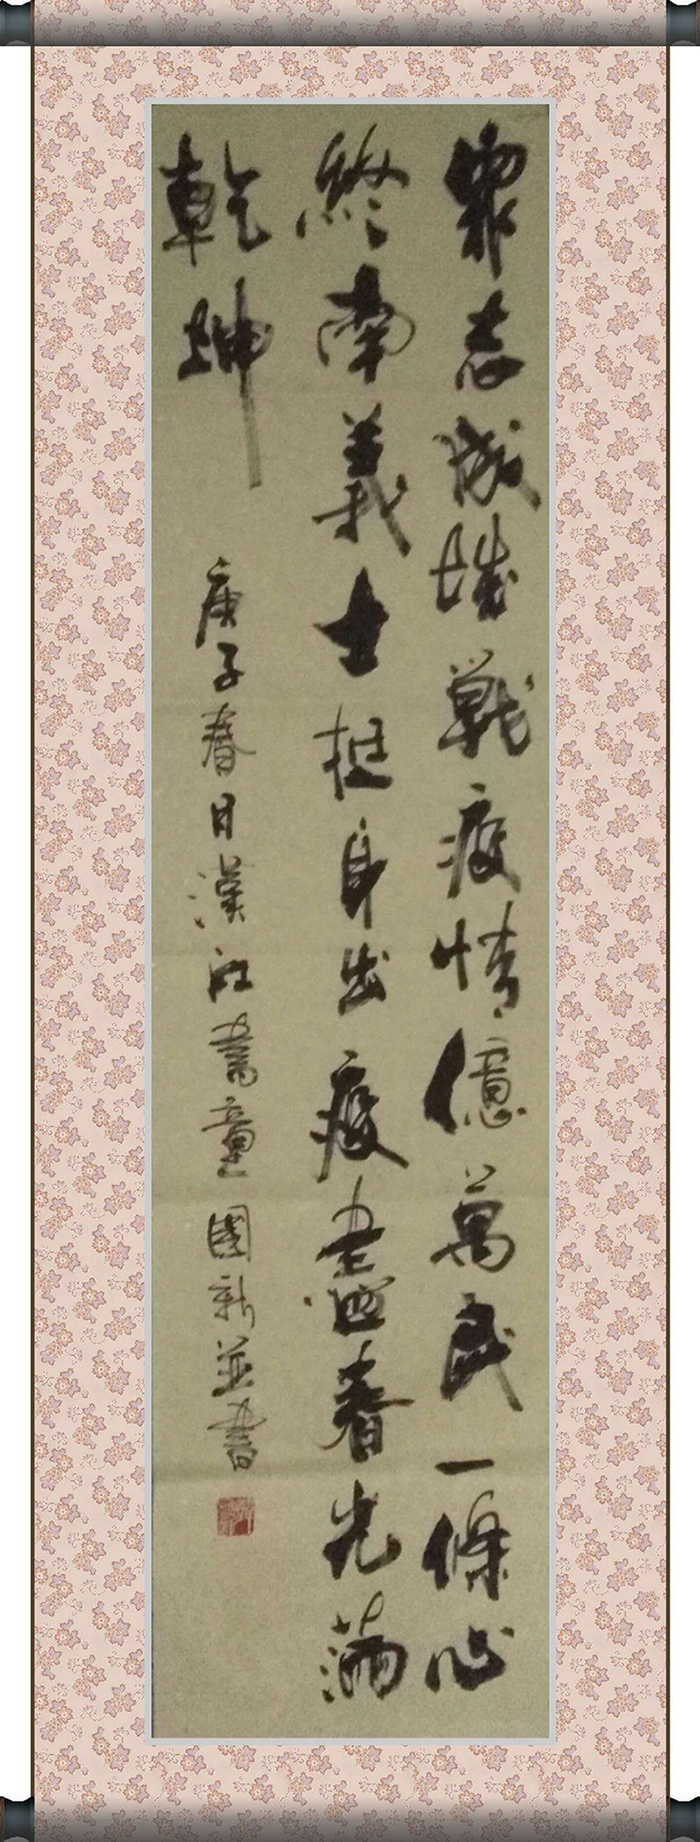 眾志成城戰疫情億萬民一條心
終南義士挺身出疫盡春光滿
乾坤
庚子春日漢江書童國新並書